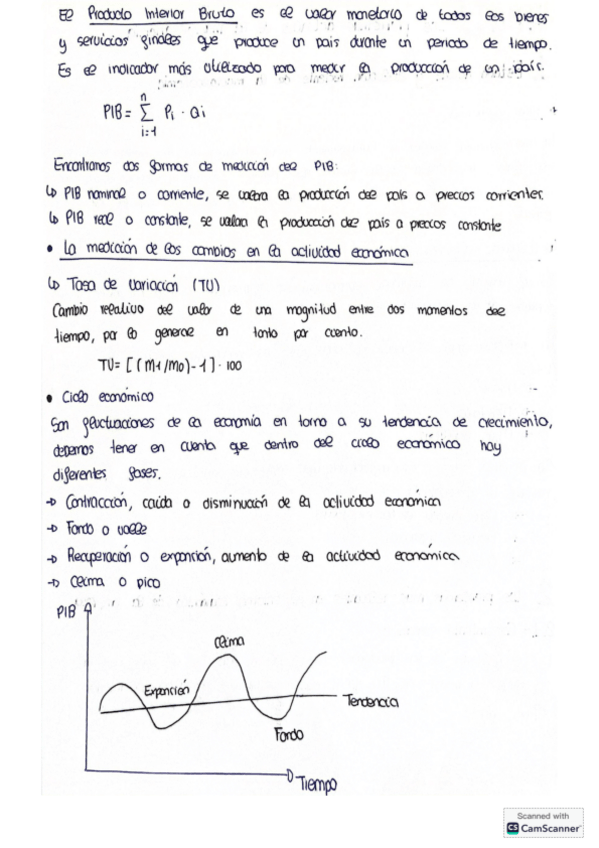 El Producto Interior Bruto es el valor monetario de todos los bienes
y servicios finales que produce un país durante un periodo de tiempo.
Es el indicador más utilizado para medir la producción de un país.
PIB = n Σ i=1 Pi · Qi
Encontramos dos formas de medición del PIB:
↳ PIB nominal o corriente, se valora la producción del país a precios corrientes.
↳ PIB real o constante, se valora la producción del país a precios constante
• La medición de los cambios en la actividad económica
↳ Tasa de variación (TV)
Cambio relativo del valor de una magnitud entre dos momentos del
tiempo, por lo general en tanto por ciento.
TV = [(M1/M0)-1] · 100
• Ciclo económico
Son fluctuaciones de la economía en torno a su tendencia de crecimiento,
debemos tener en cuenta que dentro del ciclo económico hay
diferentes fases.
→ Contracción, caída o disminución de la actividad económica
→ Fondo o valle
→ Recuperación o expansión, aumento de la actividad económica
→ Cima o pico
PIB
Cima
Expansión
Tendencia
Fondo
Tiempo
Scanned with
CS CamScanner